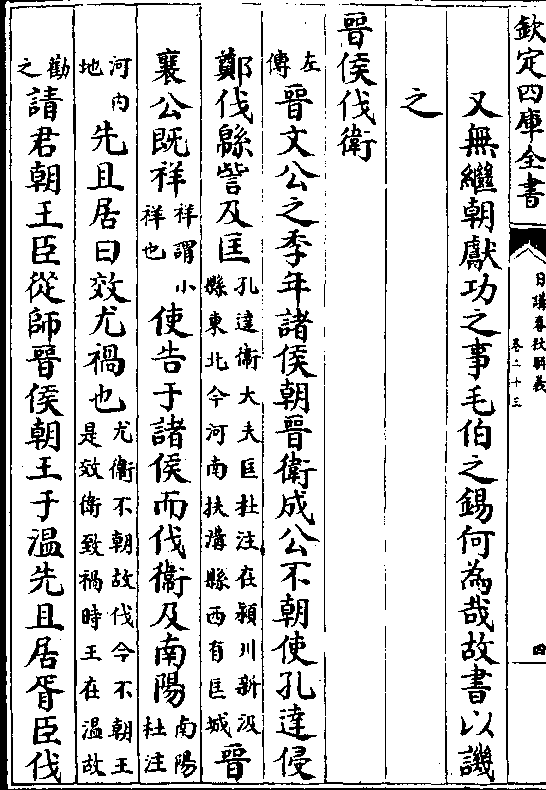 欽定四庫全書
日講春秋解義
卷二十三
四
又無繼朝獻功之事毛伯之錫何為哉故書以譏
之
晉侯伐衛
左傳晉文公之季年諸侯朝晉衛成公不朝使孔達侵
鄭伐緜訾及匡孔達衛大夫匡杜注在潁川新汲縣東北今河南扶溝縣西有匡城晉
襄公既祥祥謂小祥也使告于諸侯而伐衛及南陽南陽杜注
河內地先且居曰效尤禍也尤衛不朝故伐今不朝王是效衛致禍時王在溫故
勸之請君朝王臣從師晉侯朝王于溫先且居胥臣伐